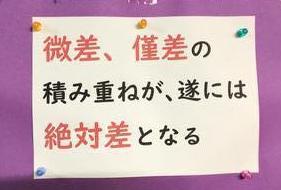 微差、僅差の
積み重ねが、遂には
絶対差となる